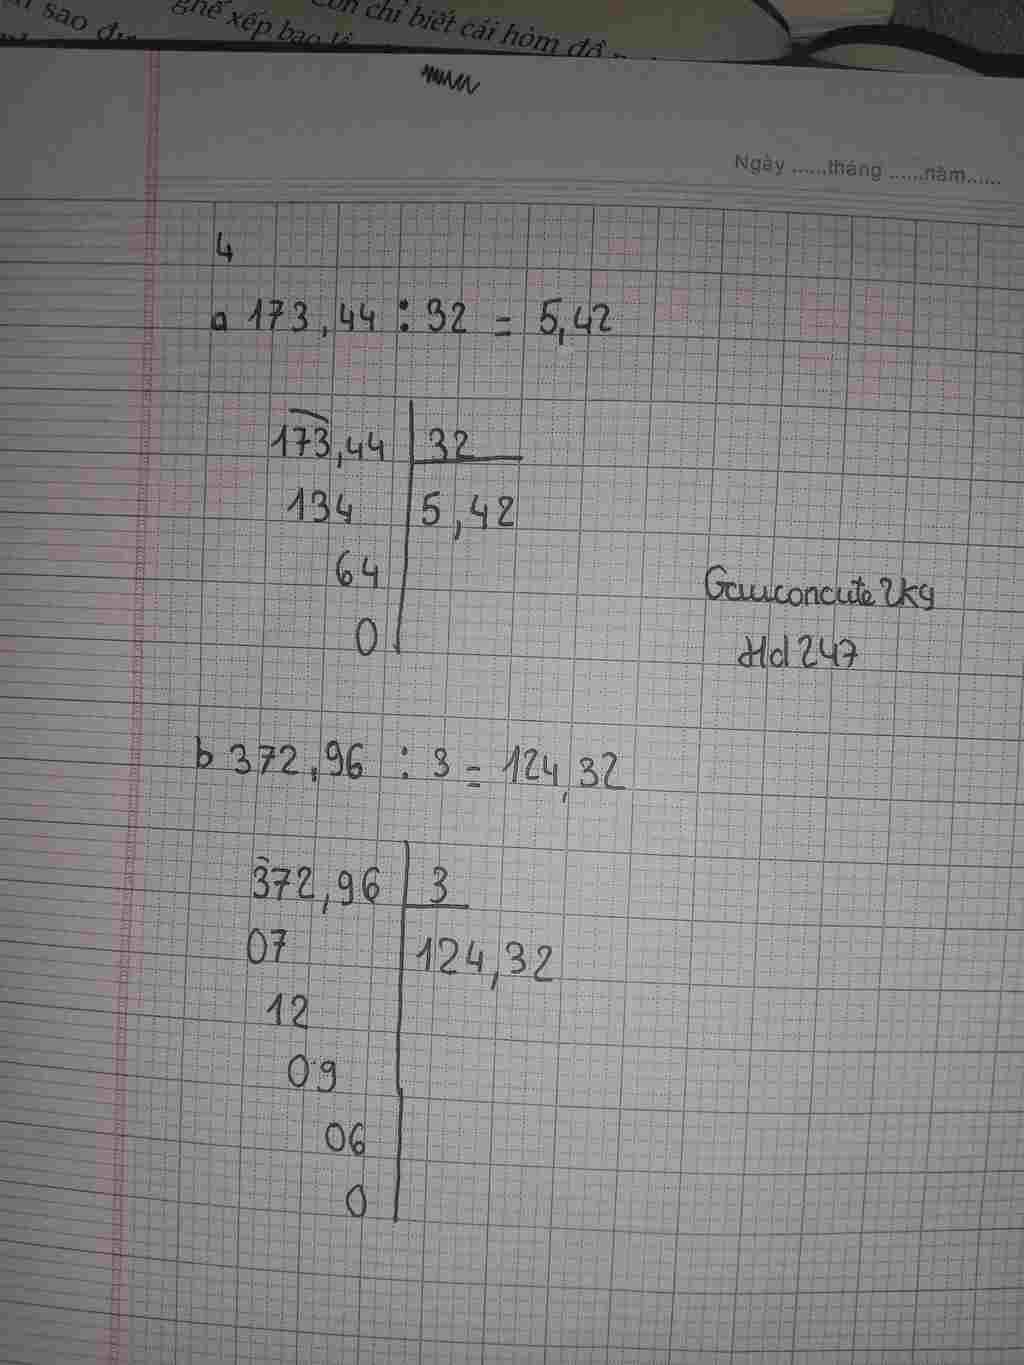 sao đư
ghế xếp bao lâ
còn chỉ biết cái hòm đồ
Ngày ......tháng ......năm......
4
a 173,44 : 32 = 5,42
173,44 32
134 5,42
64
0
Gauconcute2kg
Hd247
b 372,96 : 3 = 124,32
372,96 3
07 124,32
12
09
06
0